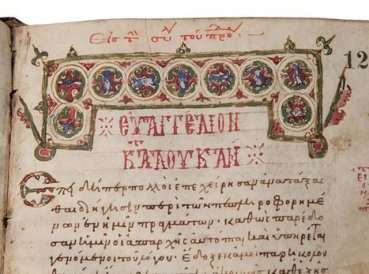 Εἰς τὴν συλ τοῦ προ
12
ΕΥΑΓΓΕΛΙΟΝ
ΚΑΤ ΛΟΥΚΑΝ
Ἐπειδήπερ πολλοὶ ἐπεχείρησαν ἀνατάξασ
θαι διήγησιν περὶ τῶν πεπληροφορημέ
νων ἐν ἡμῖν πραγμάτων, καθὼς παρέδο
σαν ἡμῖν οἱ ἀπαρχῆς αὐτόπται καὶ ὑπηρέται
γενόμενοι τοῦ λόγου. ἔδοξε κἀμοὶ παρηκολου